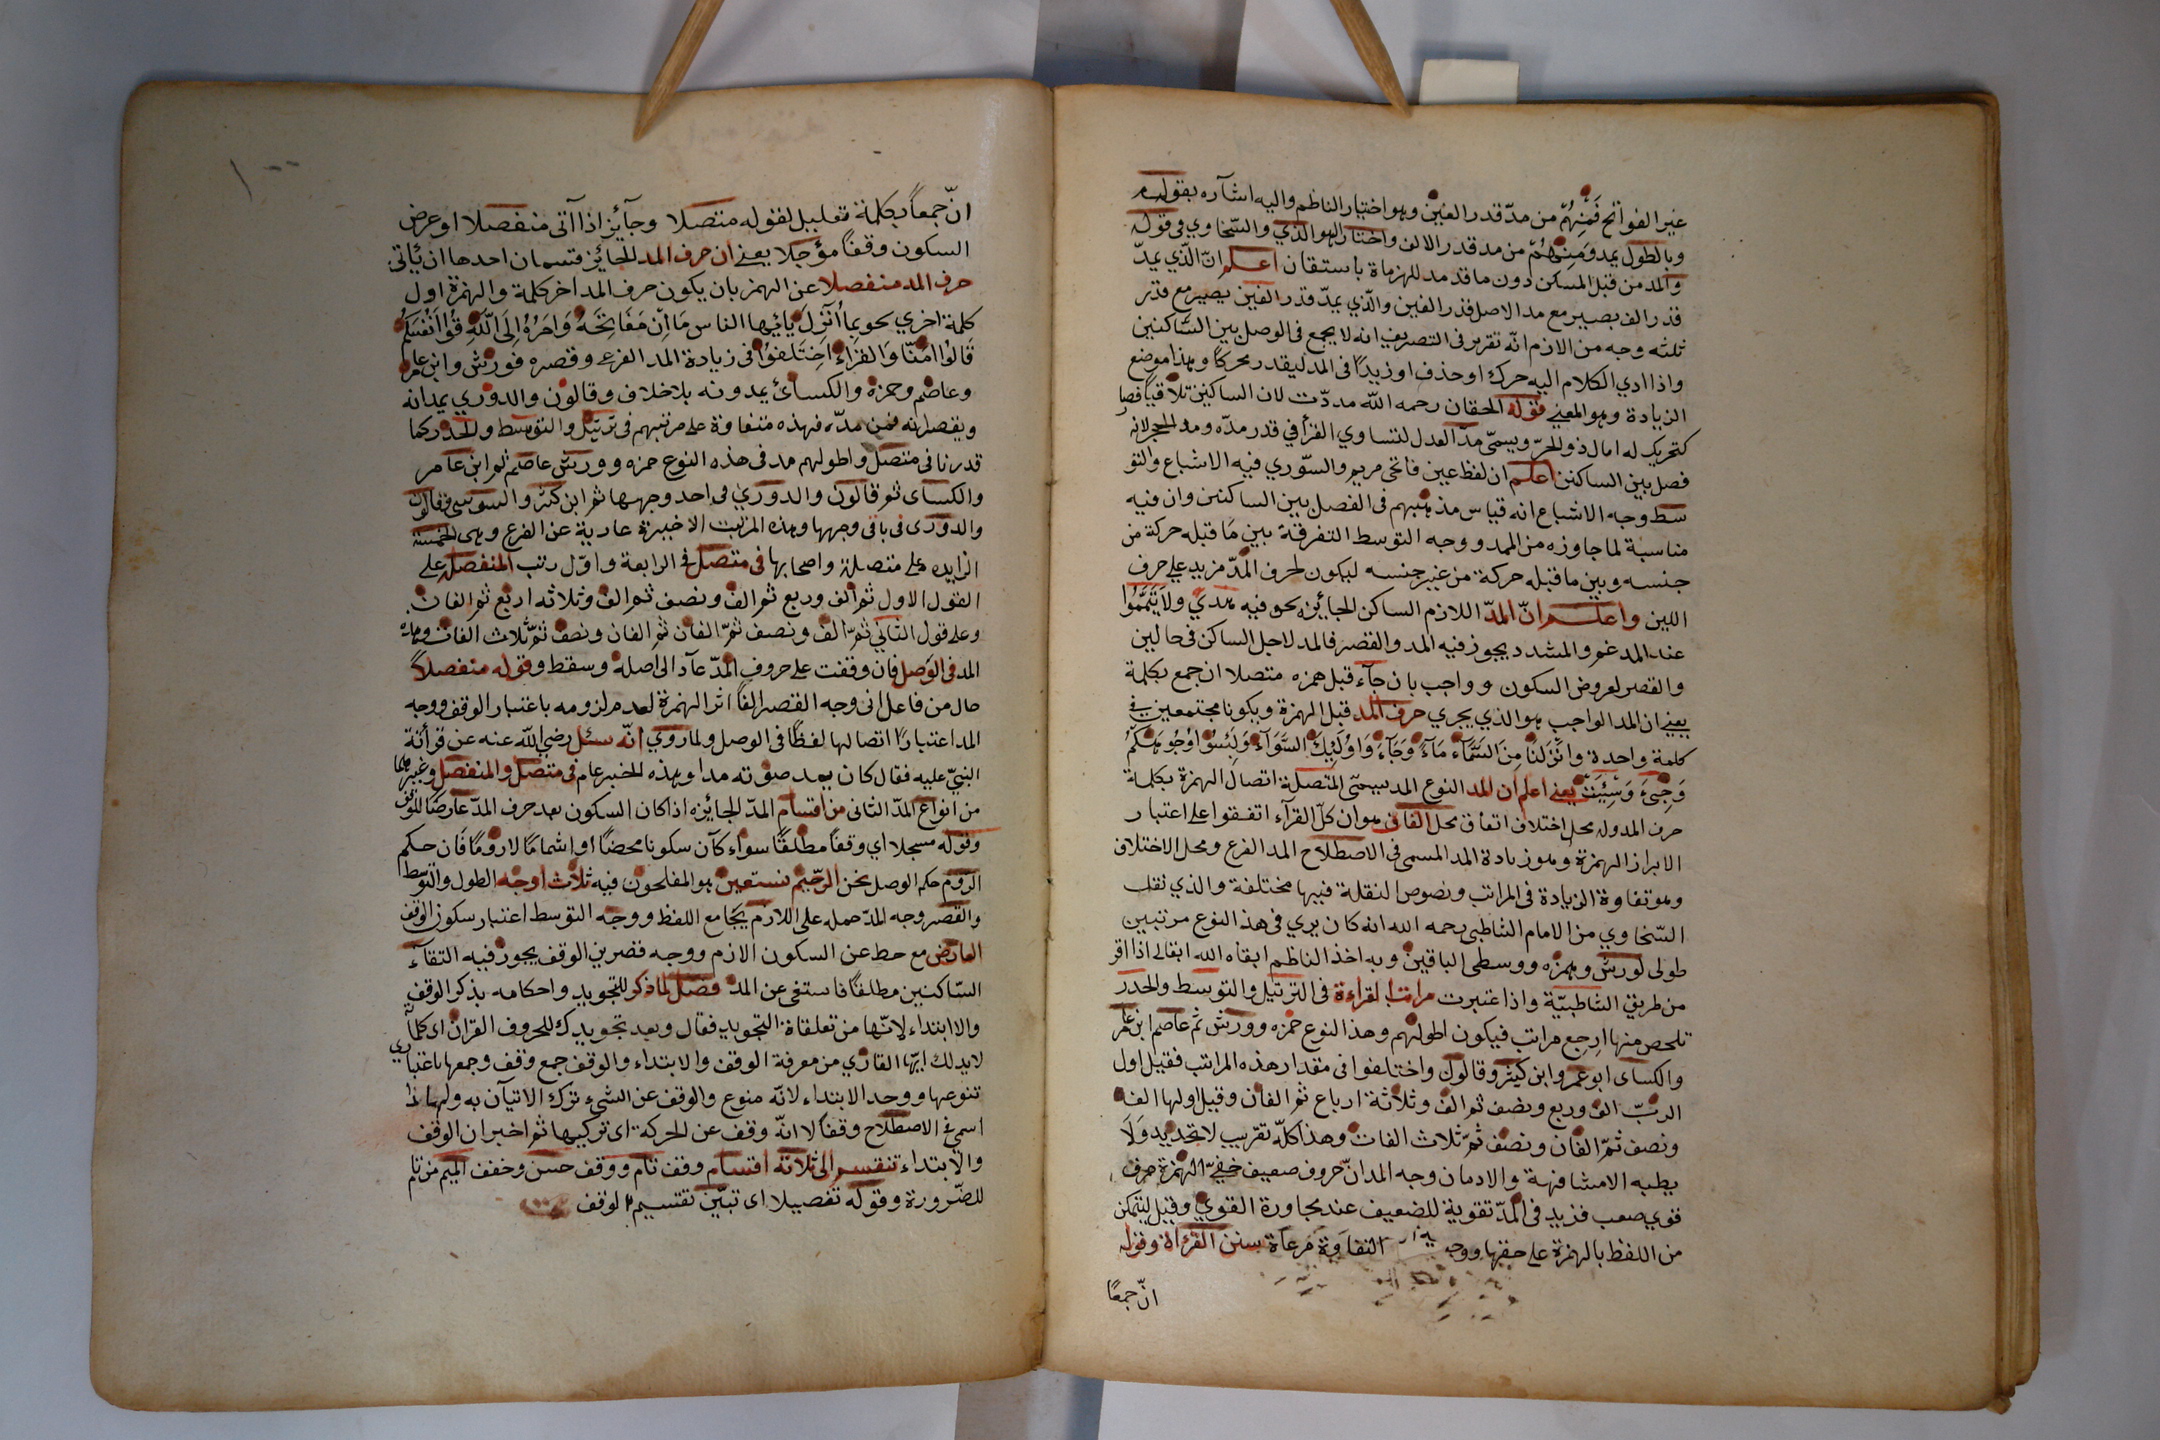 غير الفواتح فمنهم من مدّ قدر الفين وهو اختيار الناظم واليه اشار بقوله
وبالطول يمد ومنهم من مد قدر الالف واختار الهوالذي والسّخاوي في قوله
والمد من قبل المسكن دون ما قد مد للهمزاة باستيقان اعلم انّ الّذي يمدّ
قدر الف يصير مع مد الاصل قدر الفين والّذي يمدّ قدر الفين يصير مع قدر
ثلثه وجه من الازم انّه تقرير في التصريف انه لا يجمع في الوصل بين السّاكنين
واذا ادي الكلام اليه حرك او حذف او زيد في المد ليقدر محركا وهذا موضع
الزيادة وهو المعني قوله الحقان رحمه الله مددّت لان الساكنين تلاقيا فصار
كتحريك له امال ذو الحرّ ويسمّى مدّ العدل لتساوي القرأ في قدر مدّه ومد الحجز لانه
فصل بين الساكنين اعلم ان لفظ عين فاتحي مريم والسّوري فيه الاشباع والتو
سط وجه الاشباع انه قياس مذهبهم في الفصل بين الساكنين وان فيه
مناسبة لما جاوزه من الممد ووجه التوسط التفرقة بين ما قبله حركة من
جنسه وبين ما قبله حركة من غير جنسه ليكون لحرف المدّ مزيد على حرف
اللين واعلم انّ المدّ اللازم الساكن الجايزه نحو فيه هدي ولا تيمموا
عند المدغم والمشدد يجوز فيه المد والقصر فالمد لاجل الساكن في حالين
والقصر لعروض السكون وواجب بان جآء قبل همزه متصلا ان جمع بكلمة
يعني ان المد الواجب هو الذي يجري حرف المد قبل الهمزة ويكونا مجتمعين في
كلمة واحدة وانزلنا من السّمآء مآء وجآء واولئك السّوآء وليسؤا وجوهكم
وجيء وسيئت يعني اعلم ان المد النوع المد يسمّى المتصلة اتصال الهمزة بكلمة
حرف المد وله محل اختلاف اتفاق محل القاف هو ان كلّ القرآء اتفقوا على اعتبار
الابراز الهمزة وهو زيادة المد المسمى في الاصطلاح المد الفرع ومحل الاختلاف
وهو تفاوة الزيادة في المراتب ونصوص النقلة فيها مختلفة والذي نقله
السّخاوي من الامام الشاطبي رحمه الله انه كان يري في هذا النوع مرتبين
طولى لورش وهمزه ووسطى الباقين وبه اخذ الناظم ابقاه الله ابقالى اذا اقر
من طريق الشاطبيّة واذا عتبرت مراتب القراءة في الترتيل والتوسط والحدر
تلحص منها ارجع مراتب فيكون اطولهم وهذا النوع حمزه وورش ثم عاصم ابن عامر
والكساى ابو عمرو ابن كيثر وقالون واختلفوا في مقدار هذه المراتب فقيل اول
الرتب الف وربع ونصف ثم الف وثلاثة ارباع ثم الفان وقيل اولها الف
ونصف ثمّ الفان ونصف ثمّ ثلاث الفات وهذا كلّه تقريب لا تحديد ولا
يطبه الامشافهة والادمان وجه المد انّ حروف صعيف خفيّ الهمزة حرف
قوي صعب فزيد في المدّ تقوية للضعيف عند مجاورة القوي وقيل ليتمكن
من اللفظ بالهمزة على حقها ووجه التفاوة مرعاة سنن القرأة وقوله
انّ جمعًا
١٠٠
انّ جمعاً بكلمة تعليل لقوله متصلا وجآيز اذا آتى منفصلا او عرض
السكون وقفاً مؤجلا يعني ان حرف المد للجائز قسمان احدها ان يئاتي
حرف المد منفصلا عن الهمز بان يكون حرف المد اخر كلمة والهمزة اول
كلمة اخري نحو بما أنزل يائيها الناس ما ان مفاتحه وامره الى الله قوا انفسكم
قالوا امنّا والقرّاء اختلفوا في زيادة المد الفرع وقصره فورش وابن عامر
وعاصم وحمزة والكسائ يمدونه بلا خلاف وقالون والدوري يمدانه
ويقصرانه فمن مدّه فهذه متفاوة على مرتبهم في ترتيل والتوسط والحدر كما
قدرنا في متصل واطولهم مد في هذه النوع حمزه وورش عاصم ثم ابن عامر
والكساى ثم قالون والدوري في احد وجهها ثم ابن كثر والسوسى ففالون
والدورى في باقى وجهها وهذه المرتبت الاخيرة عارية عن الفرع وهى الخمسة
الزايده على متصلة واصحابها في متصل في الرابعة واوّل رتب المنفصل على
القول الاول ثم الف وربع ثم الف ونصف ثم الف وثلاثه اربع ثم الفان
وعلى قول الثاني ثمّ الف ونصف ثمّ الفان ثم الفان ونصف ثمّ ثلاث الفات وهذه
المد في الوصل فان وقفت على حروف المدّ عآد الى اصله وسقط وقوله منفصلاً
حال من فاعل انى وجه القصر الفا اثر الهمزة لعدم لزومه باعتبار الوقف ووجه
المد اعتبارا اتصالها لفظا في الوصل ولما روي انّه سئل رضي الله عنه عن قرأتة
النبيّ عليه فقال كان يمد صوته مدا وهذه الخبر عام في متصل والمنفصل وغير هما
من انواع المدّ الثانى من اقسام المدّ الجائزه اذا كان السكون بعد حرف المدّ عارضا للوقف
وقوله مسجلا اى وقفا مطلقًا سوآء كآن سكونا محضًا او اشمامًا لا رومًا فان حكم
الروم حكم الوصل نحن الرحيم نستعين هو المفلحون فيه ثلاث اوجه الطول والتوسط
والقصر وجه المدّ حمله على اللازم بجامع اللفظ ووجه التوسط اعتبار سكون الوقف
العارض مع حط عن السكون الازم ووجه قصر بن الوقف يجوز فيه التقآء
السّاكنين مطلقًا فاستغى عن المد فصل لما ذكر للتجويد واحكامه بذكر الوقف
والا ابتداء لانّها من تعلقاة التجويد فقال وبعد تجويدك للحروف القرآن اى كلها
لابد لك ايّها القاري من معرفة الوقف والابتداء والوقف جمع وقف وجمعها باعتبار
تنوعها ووحد الابتداء لانّه منوع والوقف عن الشيء ترك الاتيآن به ولهاذا
اسمى في الاصطلاح وقفاً لا انّه وقف عن الحركة اى تركيبها ثم اخبر ان الوقف
والابتداء تنقسم الى ثلاثه اقسام وقف تام ووقف حسن وخفف الميم من تام
للضّرورة وقوله تفصيلا اى تبّين تقتسيم الوقف